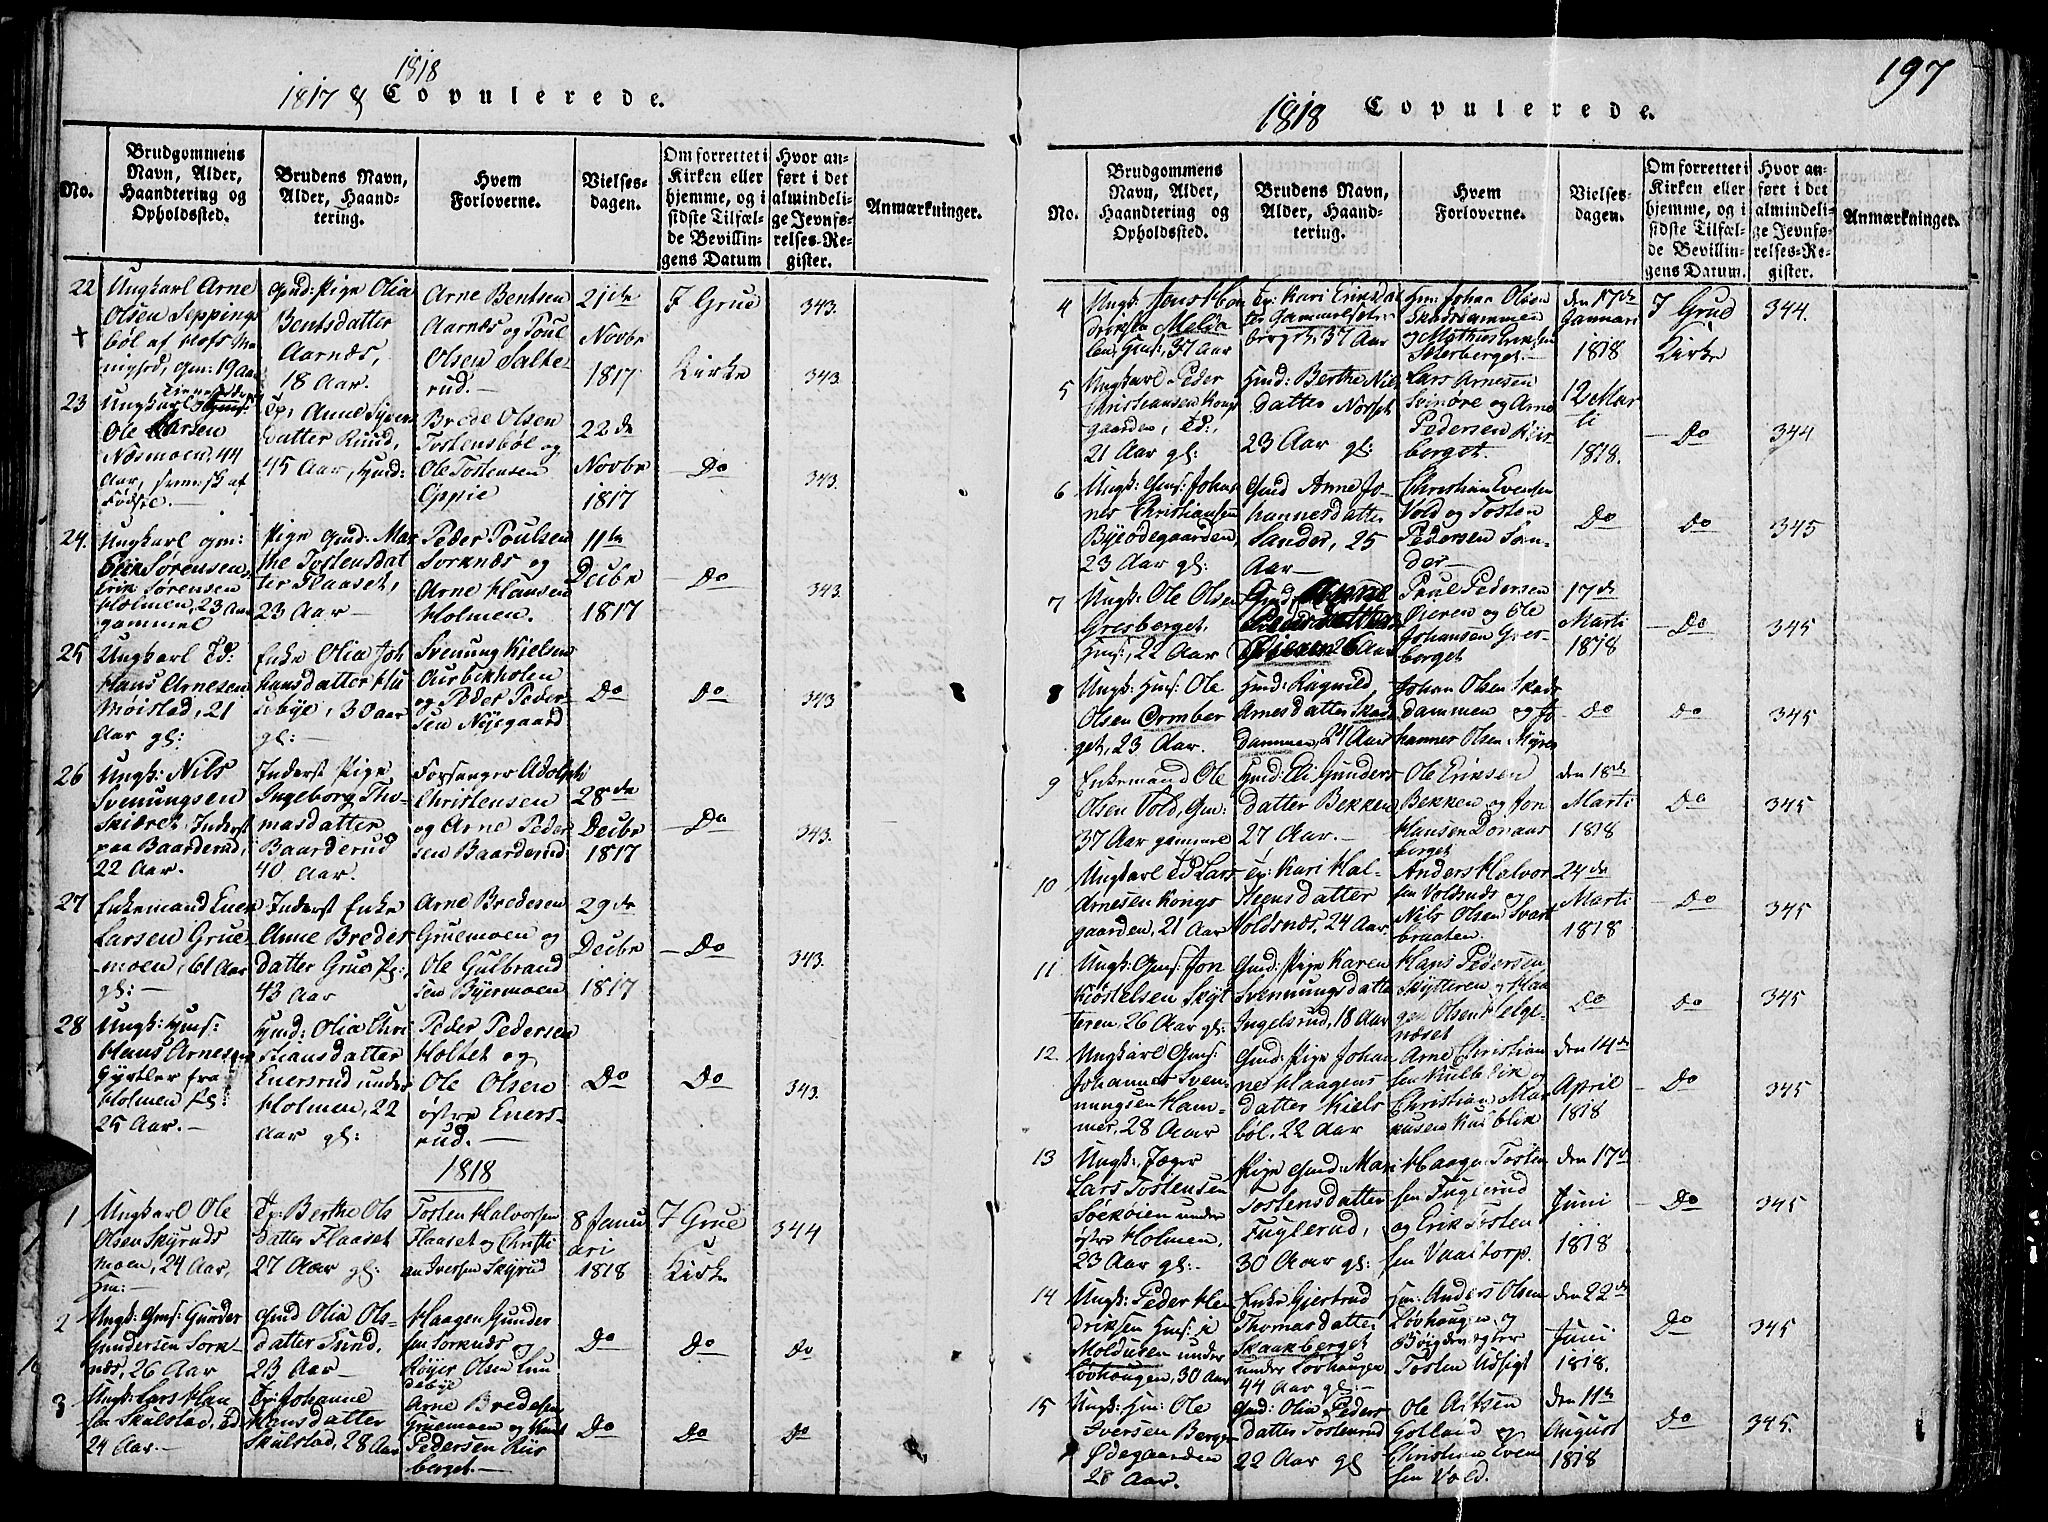 1818
1817 & Copulerede.
No.
Brudgommens Navn, Alder, Haandtering og Opholdssted.
Brudens Navn, Alder, Haandtering.
Hvem Forloverne.
Vielsesdagen.
Om forrettet i Kirken eller hjemme, og i sidste Tilfælde Bevillingens Datum
Hvor anført i det almindelige Jevnførelses-Register.
Anmærkninger.
22
+
Ungkarl Arne
Olsen Sepping
bøl af Hofs
19 Aar
Gmd: Pige Olia
Bentsdatter
Aarnæs,
18 Aar.
Arne Bentsen
Aarnæs og Poul
Olsen Salte
rud.
21de
Novbr
1817
I Grue
Kirke
343.
343
23
Ungkarl
Ole Larsen
Næsmoen, 44
Aar, svensk af
Fødsel.
Ep: Anne Syvers
datter Ruud,
45 Aar, Hmd:
Brede Olsen
Tostensbøl og
Ole Tostensen
Oppie
22de
Novbr
1817
Do
343.
24.
Ungkarl Gm:
Erik Sørensen,
Erik Sørensen
Holmen, 23 Aar
gammel
Pige Gmd: Mar
the Tostensdat
ter Flaaset,
23 Aar
Peder Poulsen
Sorknæs og
Arne Hansen
Holmen.
11te
Decbr
1817
Do
343.
25
Ungkarl Ed:
Hans Arnesen
Møistad, 21
Aar gl:
Enke Olia Joh
hansdatter Hu
sebye, 30 aar
gl:
Svenung Kielsen
Aurbekholen
og Peder Peder
sen Nyegaard
Do
Do
343
26
Ungk: Nils
Svenungsen
Skiæret, Inderst
paa Baarderud,
22 Aar.
Inderst Pige
Ingeborg Tho-
masdatter
Baarderud
40 Aar.
Forsanger Adolph
Christensen
og Arne Peder
sen Baarderud
28de
Decbr
1817
Do
343.
27
Enkemand Ener
Larsen Grue-
moen, 61 Aar
gl:
Inderst Enke
Anne Breder
datter Grue
43 Aar
Arne Bredesen
Gruemoen og
Ole Gulbrand
sen Byermoen
29de
Decbr
1817
Do
343.
28
Ungk: Hms:
Hans Arnesen
Gyrtler fra
Holmen
25 Aar.
Hmd: Olia Chri
stiansdatter
Enersrud under
Holmen, 22
Aar gl:
Peder Pedersen
Holtet og
Ole Olsen
østre Eners-
rud.
Do
Do
343.
1818
1
Ungkarl Ole
Olsen Skyruds
moen, 24 Aar,
Hm:
Ep: Berthe Ols
datter Flaaset
27 Aar gl:
Tosten Halvorsen
Flaaset og Christi
an Iversen Skyrud
8 Janu
ari
1818
I Grue
Kirke
344
2
Ungk: Gms: Gunder
Gundersen Sork
næs, 26 Aar
Gmd Olia Ols-
datter Lund,
23 Aar
Haagen Gunder
sen Sorknæs og
Røyer Olsen Lun
debye
Do
Do
Do
3
Ungk: Lars Han
sen Skulstad, Ed
24 Aar.
Ep: Johanne
Hansdatter
Skulstad, 28 Aar
Arne Bredesen
Gruemoen og Knut
Pedersen Riis
berget.
Do
Do
Do
197
1818 Copulerede.
No.
Brudgommens Navn, Alder, Haandtering og Opholdssted.
Brudens Navn, Alder, Haandtering.
Hvem Forloverne.
Vielsesdagen.
Om forrettet i Kirken eller hjemme, og i sidste Tilfælde Bevillingens Datum.
Hvor anført i det almindelige Jevnførelses-Register.
Anmærkninger.
4
Ungk: Jens Hen
driksen Melda
len, Gms: 37 Aar
Ep: Kari Eriksdat
ter Gammelsæter
berget, 37 Aar
Hm: Johan Olsen
Skasdammen
og Mathis Eriksen
Sæterberget.
den 17de
Januari
1818
I Grue
Kirke
344.
5
Ungkarl Peder
Christiansen Kongs
gaarden, Ed:,
21 Aar gl:
Hmd: Berthe Nils
datter Norset
23 Aar gl:
Lars Arnesen
Svinøre og Arne
Pedersen Riis-
berget.
12 Mar
ti
1818.
Do
344
6
Ungk: Gms: Johan
nes Christiansen
Byeødegaarden,
23 Aar gl:
Gmd Anne Jo-
hannesdatter
Sander, 25
Aar
Christian Evensen
Vold og Tosten
Pedersen San-
der
Do
Do
345
7
Ungk: Ole Olsen
Gresberget,
Hms:, 22 Aar
Gmd: Anne
26 Aar
Paul Pedersen
Oieren og Ole
Johansen Gres-
berget
17de
Marti
1818
Do
345
8
Ungk: Hms: Ole
Olsen Ormber
get, 23 Aar.
Hmd: Ragnild
Arnesdatter Skads
dammen, 21 Aar
Johan Olsen Skads
dammen og Jo
hannes Olsen Myren
Do
Do
345
9
Enkemand Ole
Olsen Vold, Gm:
37 Aar gammel
Hmd: Eli Gunders
datter Bekken,
27 Aar.
Ole Eriksen
Bekken og Jon
Hansen Donaas
berget
den 18de
Marti
1818
Do
345
10
Ungkarl Ed Lars
Arnesen Kongs
gaarden, 21 Aar
Ep: Kari Hal-
steensdatter
Voldsnæs, 24 Aar
Anders Halvor
sen Voldsnæs og
Nils Olsen Svart
braaten.
24de
Marti
1818
Do
345
11
Ungk: Gms: Jon
Kiøstelsen Skyt
teren, 26 Aar gl:
Gmd: Pige Karen
Svennungsdatter
Ingelsrud, 18 Aar
Hans Pedersen
Skytteren og Haa
gen Olsen Helge-
næset
Do
Do
345
12.
Ungkarl Gms:
Johannes Sven
nungsen Ham-
mer, 28 Aar
Gmd: Pige Johan
ne Haagens
datter Kiels
bøl, 22 Aar
Arne Christian
sen Kulblik og
Christian Mar
kusen Kulblik
den 14de
April
1818
Do
345
13
Ungk: Jæger
Lars Tostensen
Soekøien under
østre Holmen,
23 Aar gl:
Pige Gmd: Mari
Tostensdatter
Fuglerud,
30 Aar gl:
Haagen Tosten
sen Fuglerud
og Erik Tosten
sen Vaaltorp.
den 17de
Juni
1818
Do
345
14
Ungk: Peder Hen
driksen Hms: i
Moldusen under
Løvhaugen, 30 Aar
Enke Giertrud
Thomasdatter
Skaskberget
under Løvhaugen
44 Aar gl:
Hm: Anders Olsen
Løvhaugen og
Bøigdevægter
Tosten Udsigt
den 22de
Juni
1818.
Do
345
15
Ungk: Hm: Ole
Iversen Berger
Ødegaarden
28 Aar.
Gmd: Olia Peders
datter Tostenrud
22 Aar gl
Ole Alfsen
Golland og
Christian Even
sen Vold.
den 11te
August
1818
Do
345.